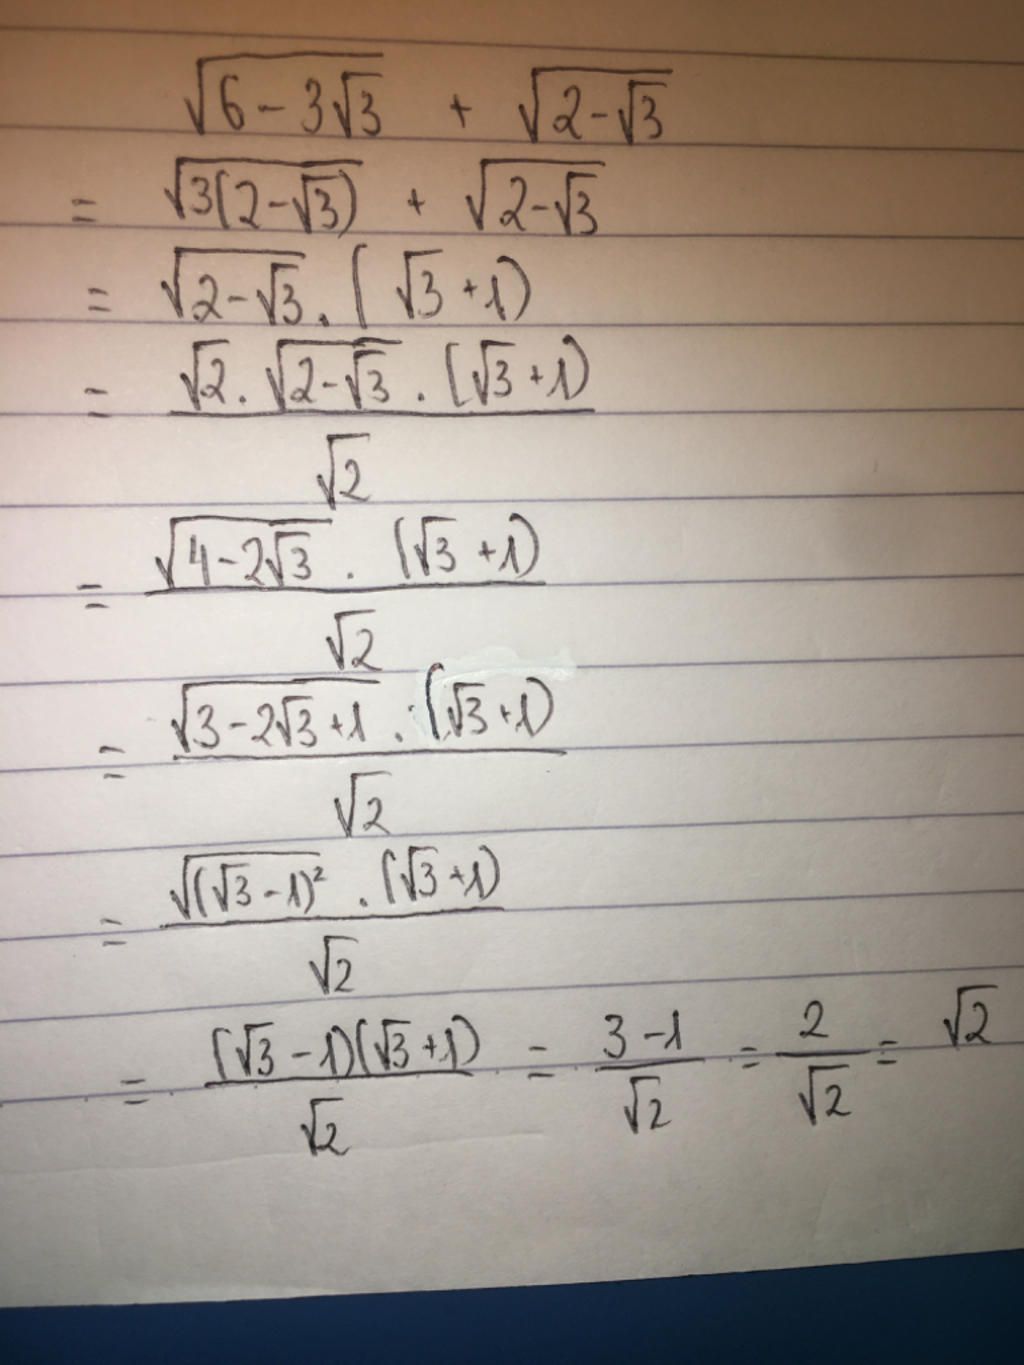 √(6 - 3√3) + √(2-√3)
= √(3(2-√3)) + √(2-√3)
= √(2-√3) . (√3 + 1)
= (√2 . √(2-√3) . (√3+1)) / √2
= (√(4-2√3) . (√3+1)) / √2
= (√(3-2√3+1) . (√3+1)) / √2
= (√((√3-1)²) . (√3+1)) / √2
= ((√3-1)(√3+1)) / √2 = (3-1) / √2 = 2 / √2 = √2